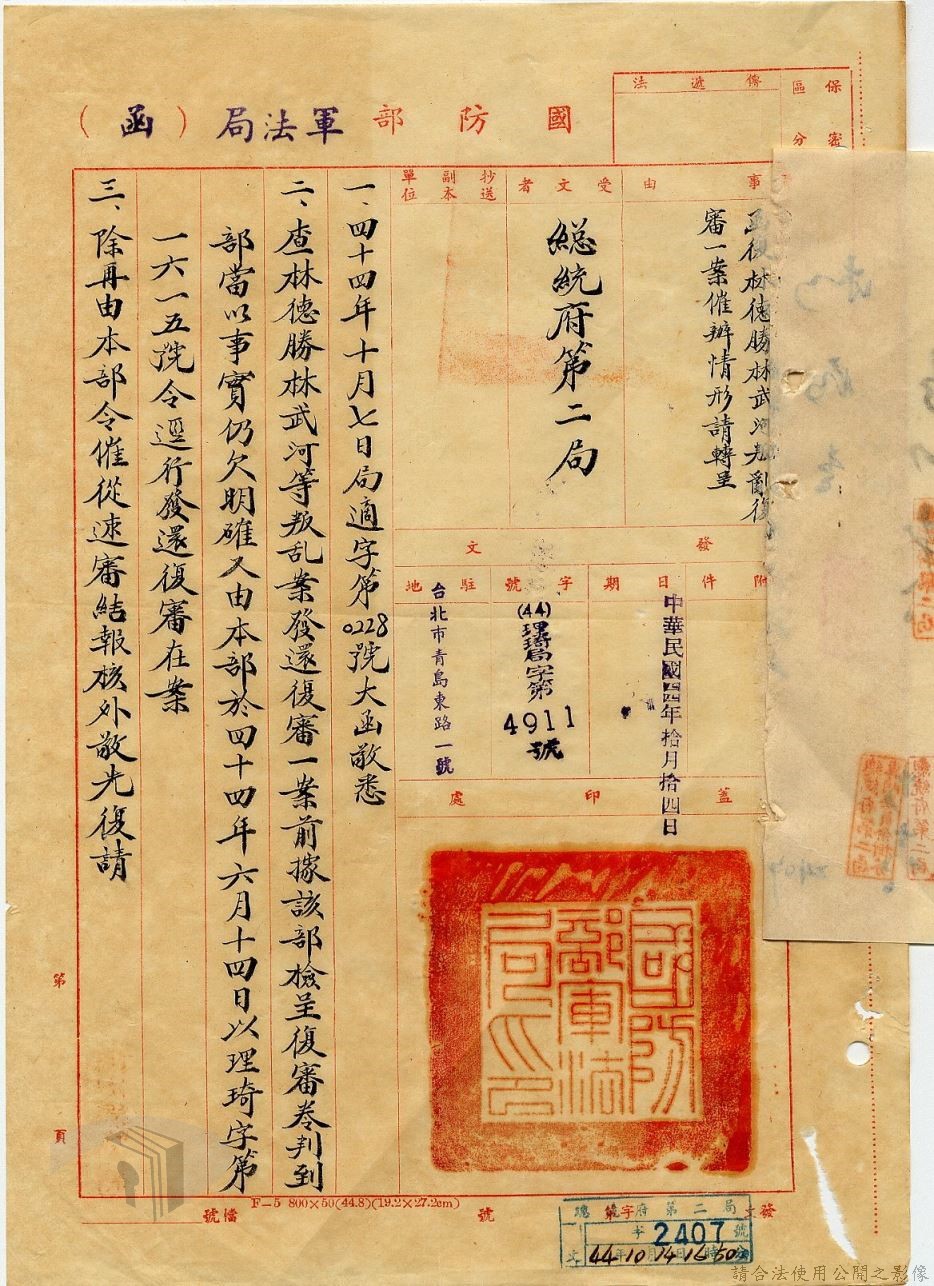 國防部軍法局（函）
保密區分
傳遞法
事由
函復林德勝林武河叛亂復
審一案催辦情形請轉呈
受文者
總統府第二局
抄送副本單位
發文
附件
日期
中華民國四四年拾月拾四日
字號
(44)理琦局字第
4911
號
駐地
台北市青島東路一號
蓋印處
國防部軍法局印
一、四十四年十月七日局適字第0228號大函敬悉
二、查林德勝林武河等叛乱案發還復審一案前據該部檢呈復審卷判到
部當以事實仍欠明確又由本部於四十四年六月十四日以理琦字第
一六一五號令逕行發還復審在案
三、除再由本部令催從速審結報核外敬先復請
第
頁
F—5 800×50(44.8)(19.2×27.2cm)
檔號
號
總統府第二局
收文
字 2407 號
44年10月14日16時50分
請合法使用公開之影像